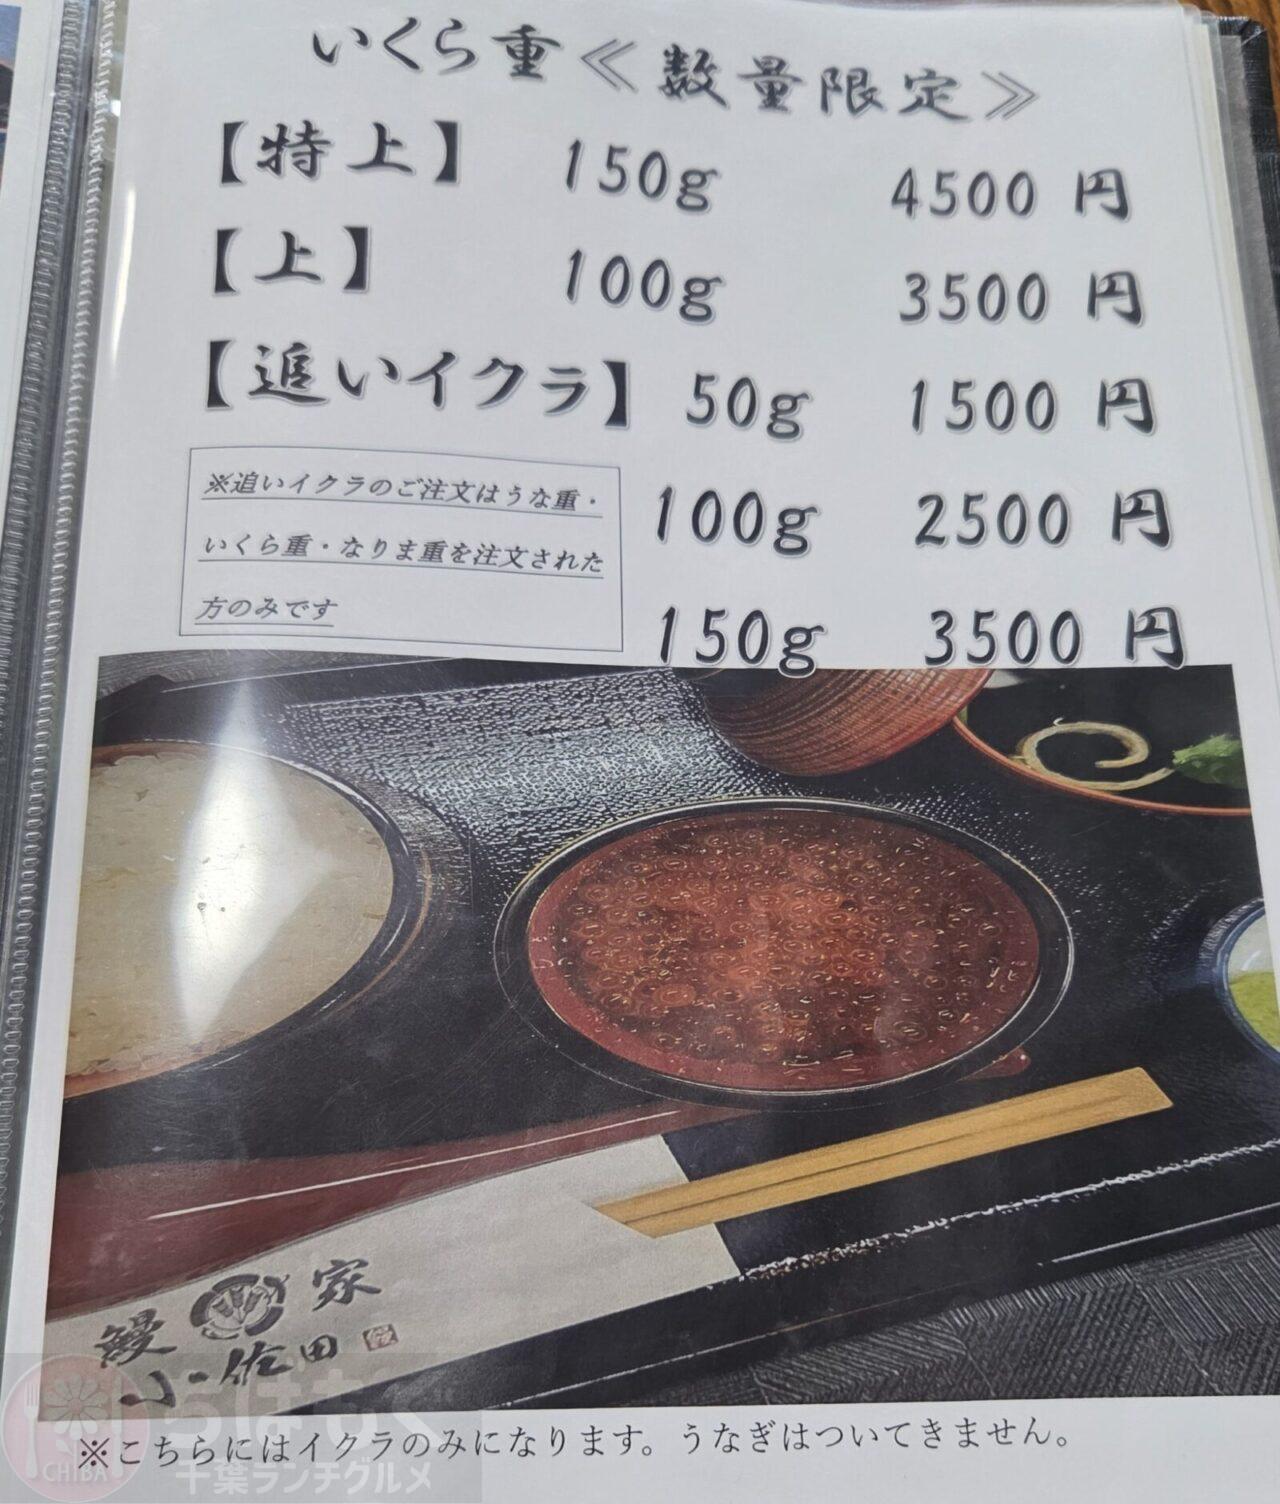 いくら重≪数量限定≫
【特上】 150g 4500円
【上】 100g 3500円
【追いイクラ】 50g 1500円
100g 2500円
150g 3500円
※追いイクラのご注文はうな重・
いくら重・なりま重を注文された
方のみです
鰻家
小佐田
※こちらにはイクラのみになります。うなぎはついてきません。
ちばもぐ
CHIBA
千葉ランチグルメ